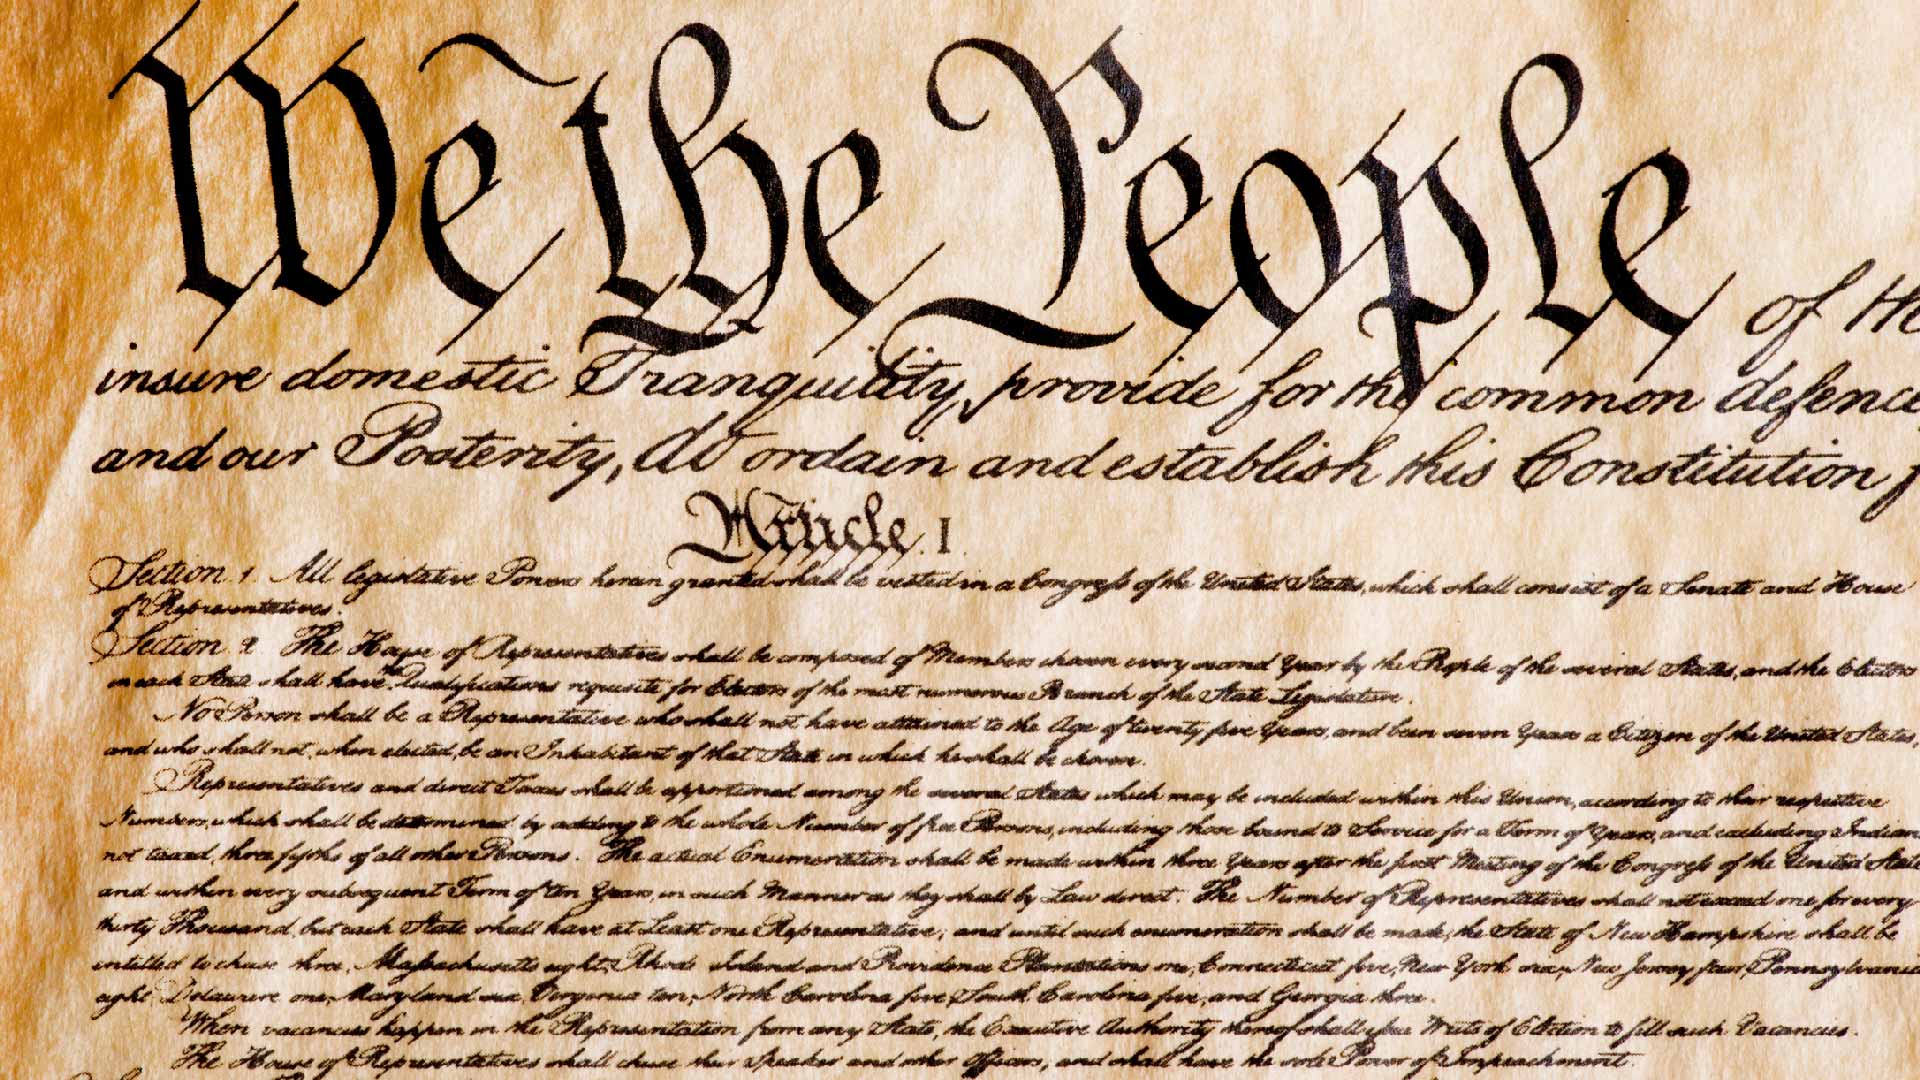 We the People of th
insure domestic Tranquility, provide for the common defence,
and our Posterity, do ordain and establish this Constitution f
Article. I
Section. 1. All legislative Powers herein granted shall be vested in a Congress of the United States, which shall consist of a Senate and House
of Representatives.
Section. 2. The House of Representatives shall be composed of Members chosen every second Year by the People of the several States, and the Electors
in each State shall have the Qualifications requisite for Electors of the most numerous Branch of the State Legislature.
No Person shall be a Representative who shall not have attained to the Age of twenty five Years, and been seven Years a Citizen of the United States,
and who shall not, when elected, be an Inhabitant of that State in which he shall be chosen.
Representatives and direct Taxes shall be apportioned among the several States which may be included within this Union, according to their respective
Numbers, which shall be determined by adding to the whole Number of free Persons, including those bound to Service for a Term of Years, and excluding Indian
not taxed, three fifths of all other Persons. The actual Enumeration shall be made within three Years after the first Meeting of the Congress of the United State
and within every subsequent Term of ten Years, in such Manner as they shall by Law direct. The Number of Representatives shall not exceed one for every
thirty Thousand, but each State shall have at Least one Representative; and until such enumeration shall be made, the State of New Hampshire shall be
entitled to chuse three, Massachusetts eight, Rhode Island and Providence Plantations one, Connecticut five, New York six, New Jersey four, Pennsylvania
eight, Delaware one, Maryland six, Virginia ten, North Carolina five, South Carolina five, and Georgia three.
When vacancies happen in the Representation from any State, the Executive Authority thereof shall issue Writs of Election to fill such Vacancies.
The House of Representatives shall chuse their Speaker and other Officers; and shall have the sole Power of Impeachment.